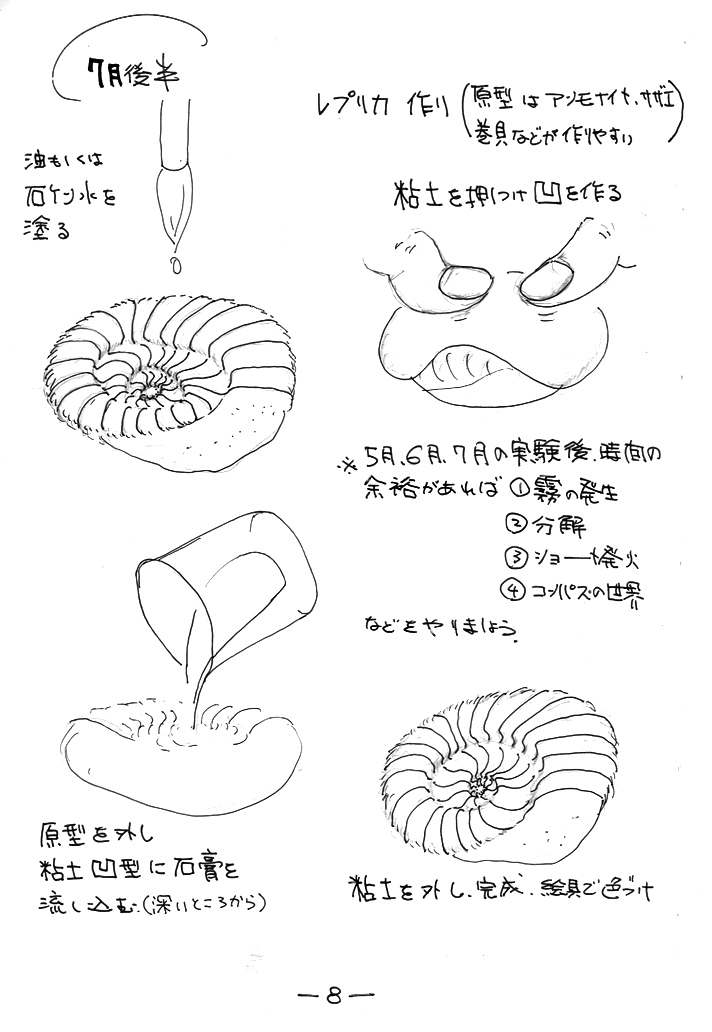 7月後半
レプリカ 作り(原型はアンモナイト、サザエ
巻貝などが作りやすい)
油もしくは
石ケン水を
塗る
粘土を押しつけ凹を作る
※5月、6月、7月の実験後、時間の
余裕があれば ①霧の発生
②分解
③ショート発火
④コンパスの世界
などをやりましょう。
原型を外し
粘土凹型に石膏を
流し込む。(深いところから)
粘土を外し、完成、絵具で色づけ
－8－